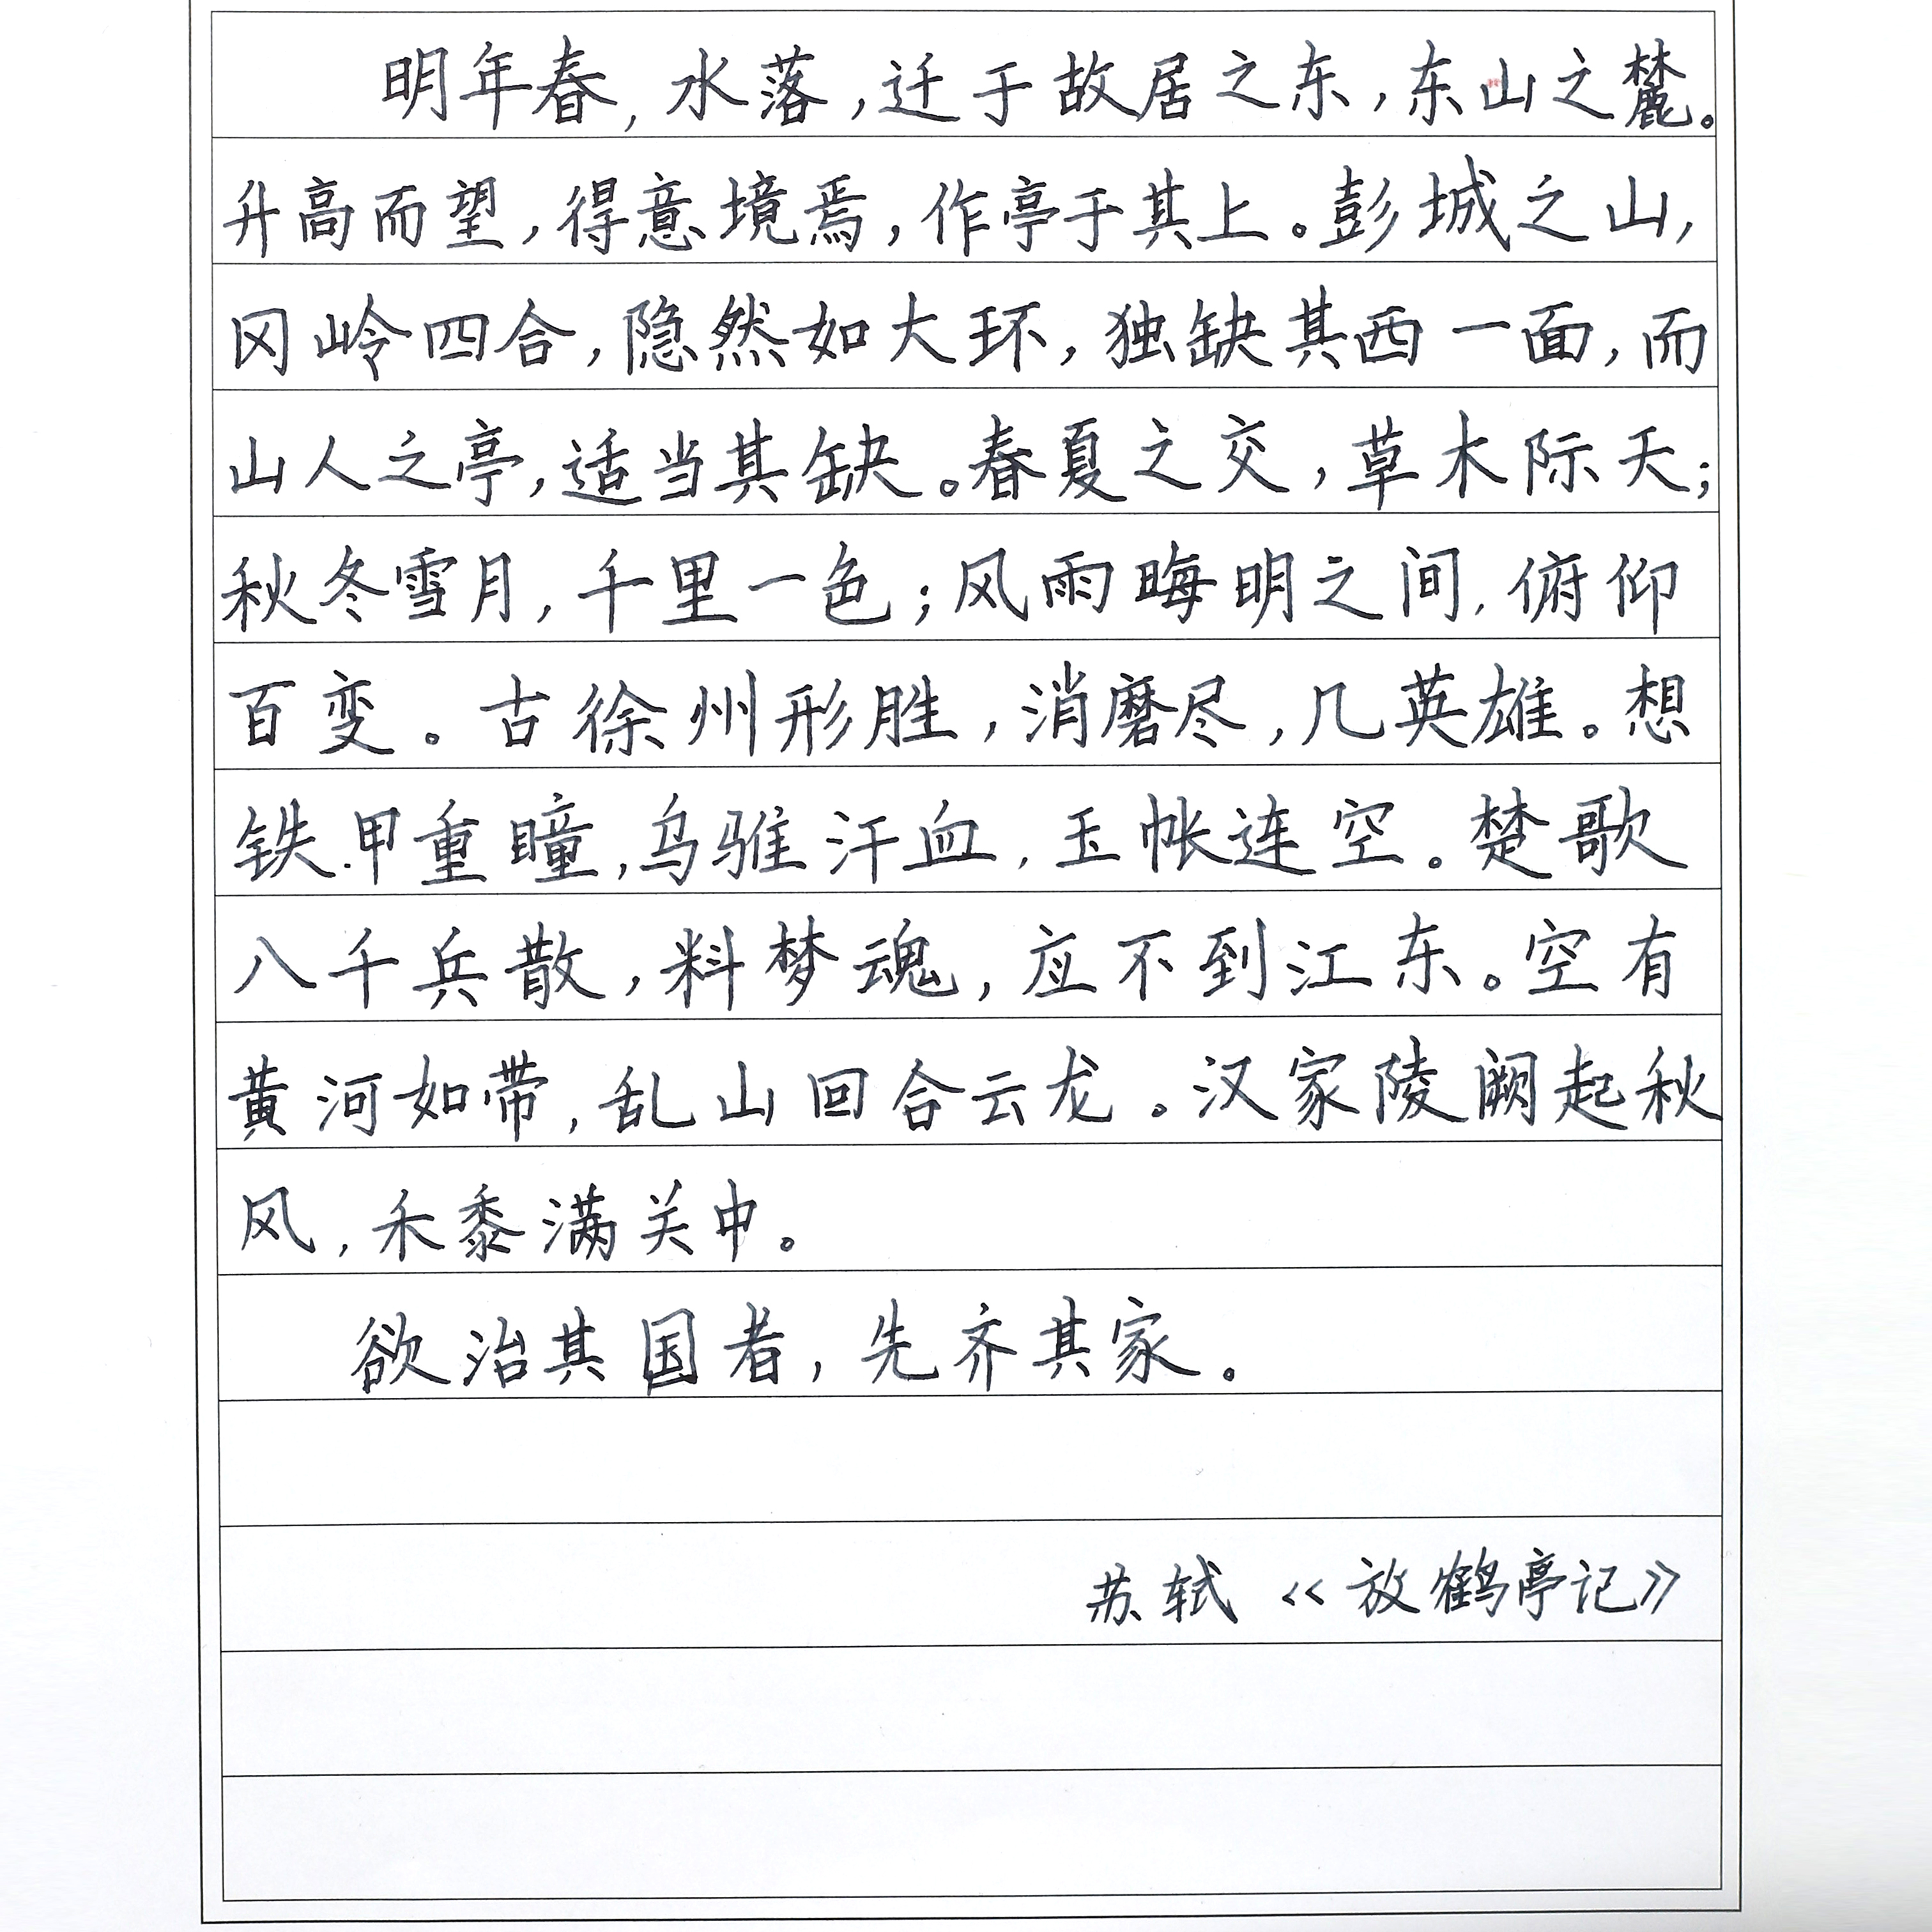 明年春,水落,迁于故居之东,东山之麓。
升高而望,得意境焉,作亭于其上。彭城之山,
冈岭四合,隐然如大环,独缺其西一面,而
山人之亭,适当其缺。春夏之交,草木际天;
秋冬雪月,千里一色;风雨晦明之间,俯仰
百变。古徐州形胜,消磨尽,几英雄。想
铁甲重瞳,乌骓汗血,玉帐连空。楚歌
八千兵散,料梦魂,应不到江东。空有
黄河如带,乱山回合云龙。汉家陵阙起秋
风,禾黍满关中。
欲治其国者,先齐其家。
苏轼《放鹤亭记》